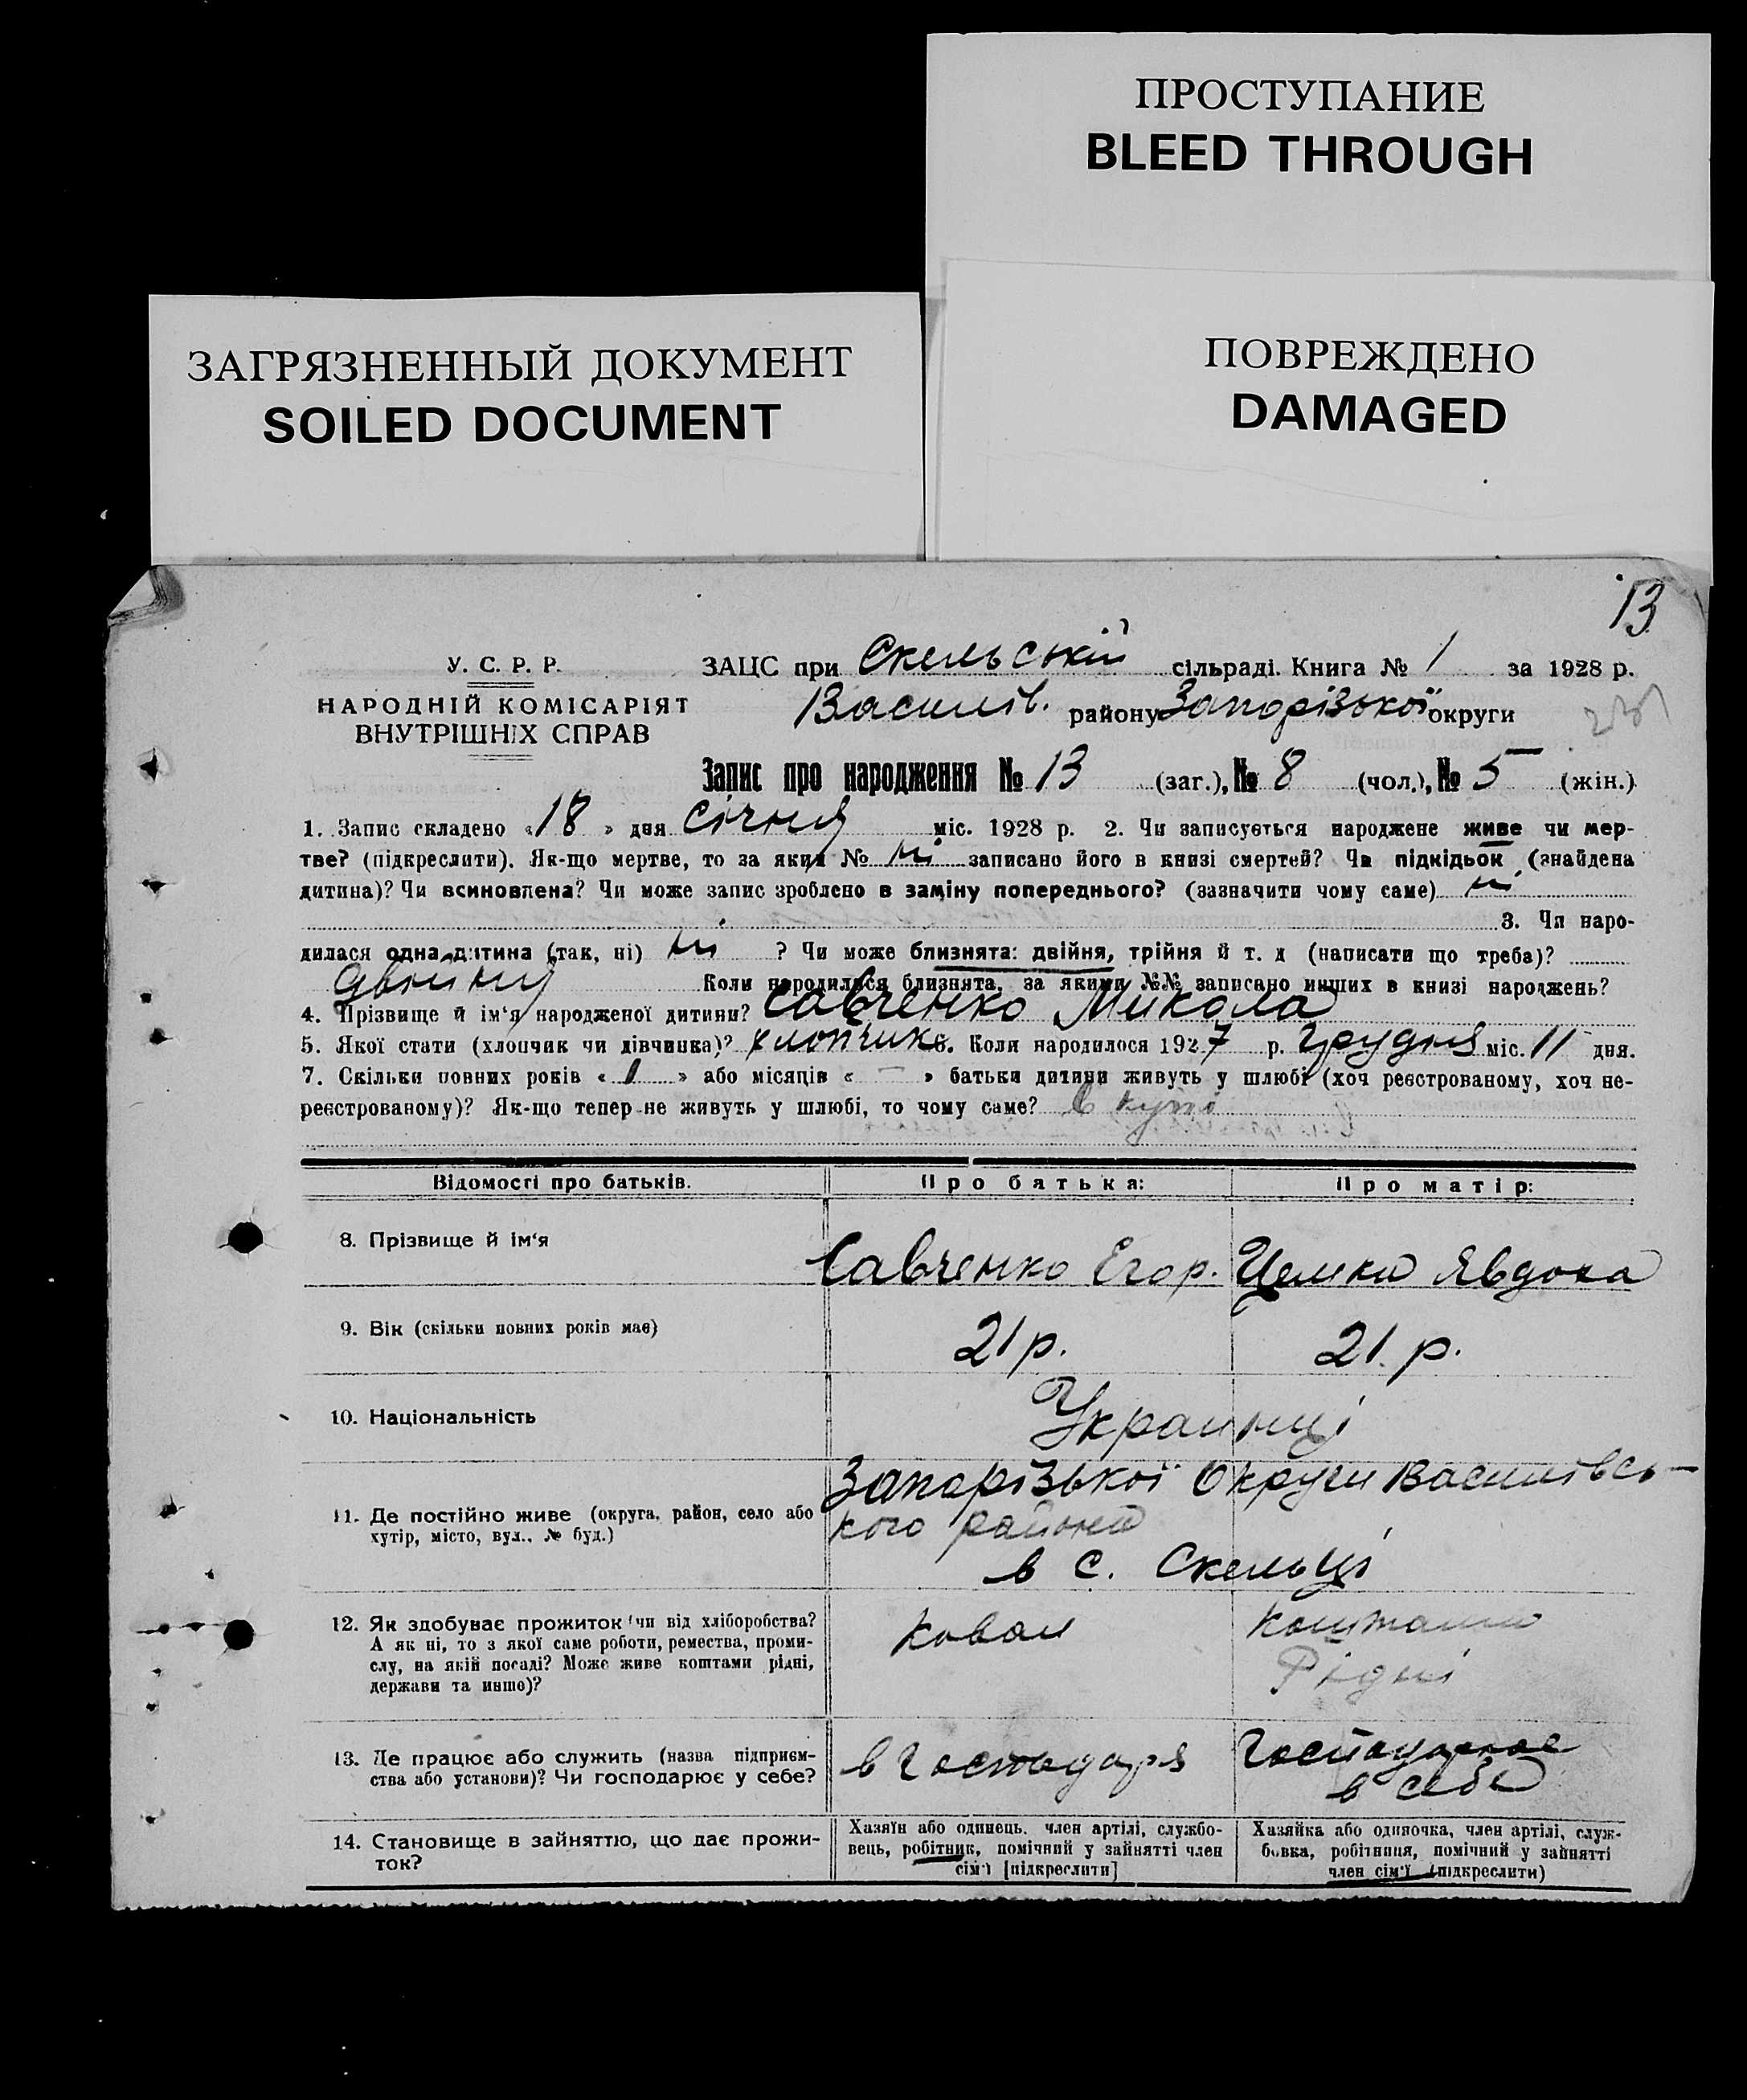 ПРОСТУПАНИЕ
BLEED THROUGH
ЗАГРЯЗНЕННЫЙ ДОКУМЕНТ
SOILED DOCUMENT
ПОВРЕЖДЕНО
DAMAGED
13
У. С. Р. Р.
НАРОДНІЙ КОМІСАРІЯТ
ВНУТРІШНІХ СПРАВ
ЗАЦС при Скельській сільраді. Книга № 1 за 1928 р.
Василів. району Запорізької округи
Запис про народження № 13 (заг.), № 8 (чол.), № 5 (жін.)
1. Запис складено «18» дня січня міс. 1928 р. 2. Чи записується народжене живе чи мер-
тве? (підкреслити). Як-що мертве, то за яким № ні записано його в книзі смертей? Чи підкідьок (знайдена
дитина)? Чи всиновлена? Чи може запис зроблено в заміну попереднього? (зазначити чому саме) ні
3. Чи наро-
дилася одна дитина (так, ні) ні ? Чи може близнята: двійня, трійня й т. д (написати що треба)?
двійня Коли народилися близнята, за якими №№ записано инших в книзі народжень?
4. Прізвище й ім'я народженої дитини? Савченко Микола
5. Якої стати (хлопчик чи дівчинка)? хлопчик 6. Коли народилося 1927 р. Грудня міс. 11 дня.
7. Скільки повних років «1» або місяців «—» батьки дитини живуть у шлюбі (хоч реєстрованому, хоч не-
реєстрованому)? Як-що тепер не живуть у шлюбі, то чому саме? в купі
Відомості про батьків. Про батька: Про матір:
8. Прізвище й ім'я Савченко Егор. Явдоха
9. Вік (скільки повних років має) 21 р. 21. р.
10. Національність Украинці
Запорізької Округи Василівсь-
11. Де постійно живе (округа, район, село або кого района
хутір, місто, вул., № буд.)
в с. Скельці
12. Як здобуває прожиток чи від хліборобства? Ковал Коштами
А як ні, то з якої саме роботи, ремества, проми- Рідні
слу, на якій посаді? Може живе коштами рідні,
держави та инше)?
13. Де працює або служить (назва підприєм- в Господаря Господарює
ства або установи)? Чи господарює у себе? в себе
14. Становище в зайняттю, що дає прожи-
ток?
Хазяїн або одинець, член артілі, службо-
вець, робітник, помічний у зайнятті член
сім'ї [підкреслити]
Хазяйка або одиночка, член артілі, служ-
бовка, робітниця, помічний у зайнятті
член сім'ї (підкреслити)